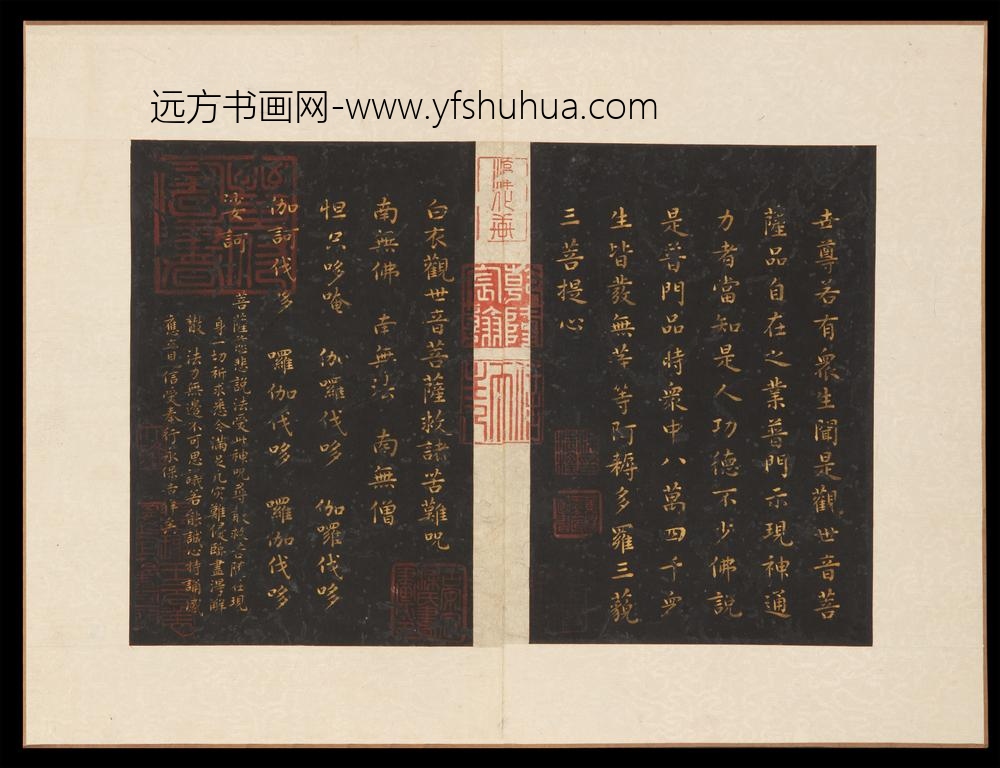 远方书画网-www.yfshuhua.com
世尊若有眾生聞是觀世音菩
薩品自在之業普門示現神通
力者當知是人功德不少佛說
是普門品時眾中八萬四千眾
生皆發無等等阿耨多羅三藐
三菩提心
白衣觀世音菩薩救諸苦難呪
南無佛 南無法 南無僧
怛只哆唵 伽囉伐哆 伽囉伐哆
伽訶伐哆 囉伽伐哆 囉伽伐哆
娑訶
菩薩慈悲說法受此神呪尋散救
現
身一切所求悉令滿足凡灾難臨盡得解
散 法力無邊不可思議若能誠心持誦
應 信受奉行永保